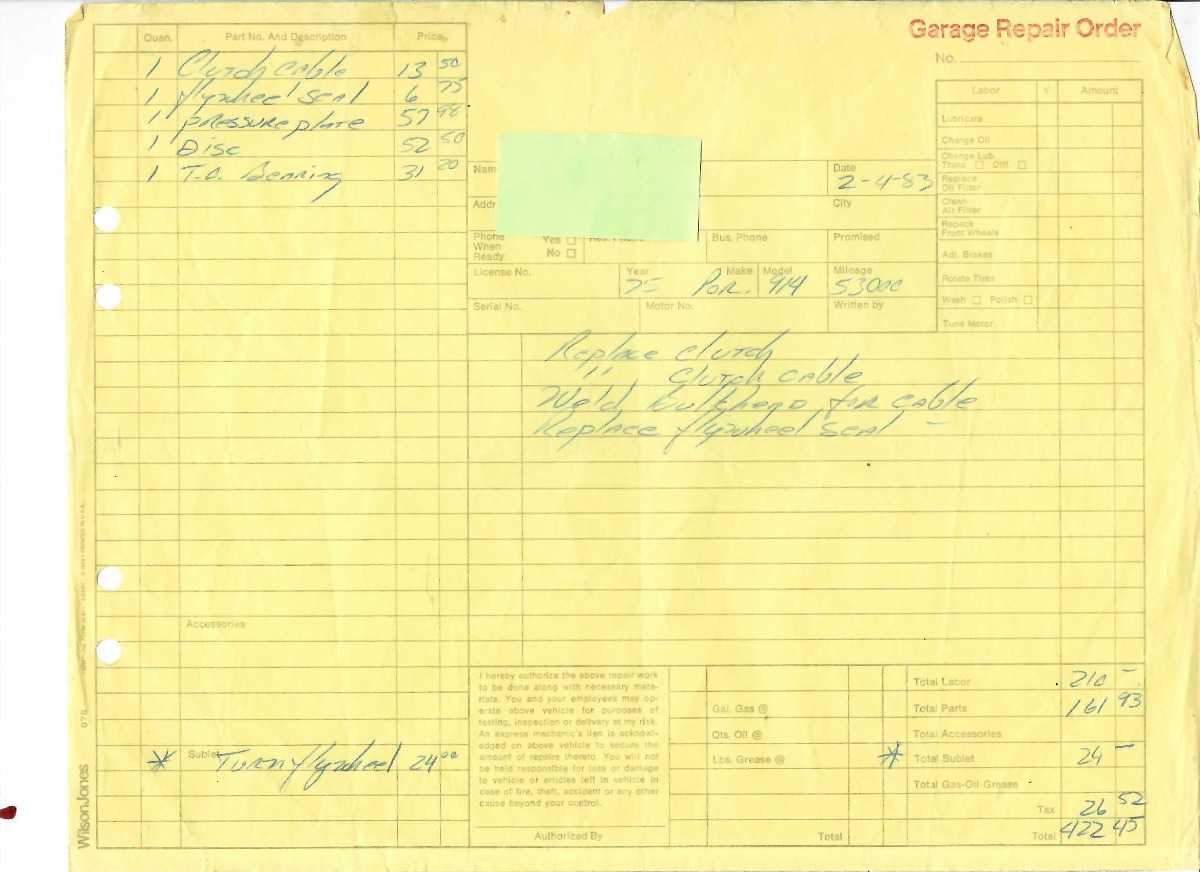 Garage Repair Order
No.
Quan. Part No. And Description Price
1 Clutch Cable 13 50
1 flywheel seal 6 75
1 pressure plate 57 98
1 Disc 52 50
1 T.O. Bearing 31 20
Accessories
* Sublet Turn flywheel 24 00
Nam
Date
2-4-83
Addr
City
Phone When Ready Yes No
Bus. Phone
Promised
License No.
Year 75
Make Por.
Model 914
Mileage 53000
Serial No.
Motor No.
Written by
Labor √ Amount
Lubricate
Change Oil
Change Lub.
Trans Diff.
Replace
Oil Filter
Clean
Air Filter
Repack
Front Wheels
Adj. Brakes
Rotate Tires
Wash Polish
Tune Motor
Replace Clutch
" Clutch Cable
Weld Bulkhead for Cable
Replace flywheel seal -
I hereby authorize the above repair work
to be done along with necessary mate-
rials. You and your employees may op-
erate above vehicle for purposes of
testing, inspection or delivery at my risk.
An express mechanic's lien is acknowl-
edged on above vehicle to secure the
amount of repairs thereto. You will not
be held responsible for loss or damage
to vehicle or articles left in vehicle in
case of fire, theft, accident or any other
cause beyond your control.
Authorized By
Gal. Gas @
Qts. Oil @
Lbs. Grease @
Total
Total Labor 210 -
Total Parts 161 93
Total Accessories
* Total Sublet 24 -
Total Gas-Oil-Grease
Tax 26 52
Total 422 45
WilsonJones